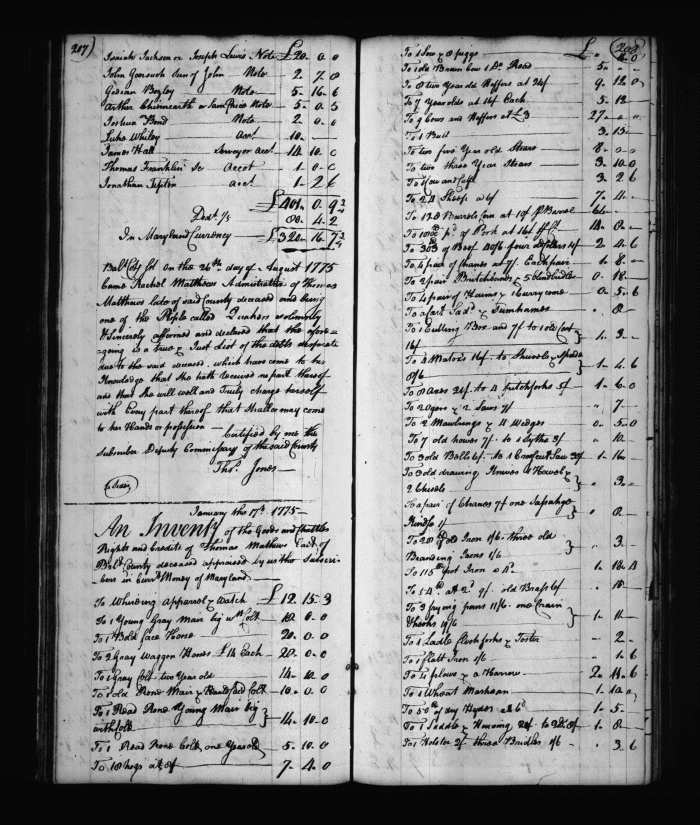 207)
Isaiah Jackson or Joseph Lewis Note £20. 0. 0
John Gorsuch Son of John — Note — 2. 7. 8
Gedion Bozley — Note — 5. 16. 6
Arthur Note — 5. 0. 5
Joshua Bond — Note — 2. 0. 0
Luke Whiley — Acct — 10. —
James Hall — Acct — 14. 10. 0
Thomas Franklin — Accot — 1. 0. 0
Jonathan — acct — 1. 2 6
£401. 0. 9
80. 4. 2
In Maryland Currency — £320. 16. 7
Balt Coty Sct On the 26th day of August 1775
Came Rachel Matthews Administratrix of Thomas
Matthews late of said County deceased and being
one of the People called Quakers solemnly
& Sincerely affirmed and declared that the afore=
=going is a true & Just List of the debts desperate
due to the said deceased, which have come to her
Knowledge that she hath received no part thereof
and that she will well and Truly charge herself
with Every part thereof that shall or may come
to her Hands or possession — Certified by me the
Subscriber Deputy Commissary of the said County
Thos. Jones —
January the 17th 1775 —
An Inventy of the Goods and Chattles
Rights and Credits of Thomas Mathews Late of
Balt County deceased appraised by us the Subscri
bers in Currt Money of Maryland —
To Wharing Apparrel & Watch £ 12. 15. 3
To 1 Young Gray Mair big wth Colt — 18. 0. 0
To 1 Bold face Horse — 20. 0. 0
To 2 Gray Waggon Horses £14 Each — 20. 0. 0
To 1 Gray Colt two Year old — 14. 10. 0
To 1 old Roan Mair & Colt — 10. 0. 0
To 1 Road Roan Young Mair big
with fold — } 14. 10. 0
To 1 Road Roan Colt one Year old — 5. 10. 0
To 18 hogs at 8/ — 7. 4. 0
208
To 1 Sow & 8 piggs — £
To 1 old Cow 1 Do Read — 5. " "
To 8 two Year old Heffers at 24/ — 9. 12. 0
To 7 Year olds at 16/ Each — 5. 12
To 9 Cows and Heffers at £3 — 27 " "
To 1 Bull — 3. 15 —
To two five Year old Stears — 8. 0
To two three Year Stears — 3. 10. 0
To 1 Cow and Calf — 3. 2 6
To 24 Sheep at 6/ — 7. 4.
To Barrels Corn at 10/ P Barrel —
To of Pork at — 14. 0. 0
To of Beef — 2. 4. 6
To 4 pair of Hames at 7/ Each pair — 1. 8. —
To 2 pair Britchbands & 5 blind bridles — 0. 18.
To 4 pair of Haims & 1 Curry come — 0. 5. 6
To a Cart & — " 8 —
To 1 Cutting Box and 7/ to 1 old Cart
16/ — } 1. 3.
To 4 Matox's 16/ to Shuvels & Spade
8/6 — } 1. 4. 6
To 8 Axes 21/ to 4 Pitchforks 5/ — 1. 6. 0
To 2 Ogers & 2 Saws 7/ — " 7 —
To 2 Mawlrings & 4 Wedges — 0. 5. 0
To 7 old howes 7/ to 1 Sythe 3/ — " 10 —
To 3 old Bells 6/ to 1 Crosscut Saw 30/ — 1. 16 —
To 3 old drawing Knives a Howel &
2 Chisels — } " 3. —
To a pair of Chanes 7/ one
1/ — } " 8. —
To 20 lb old Iron 1/6 three old
Branding Irons 1/6 — } " 3
To 115 lb Iron a 4d — 1. 18. 4
To 54 lb at 2d 9/. old Brass 6/ —
To 3 frying pans 11/6. one Crain
& hooks — } 1. 11 —
To 1 Ladle Flesh forks & Toster — " 2 —
To 1 flatt Iron 1/6 — " 1. 6
To 4 plows & a Harrow — 2. 14. 6
To 1 Wheat — 1. 10
To 50 lb of dry Hydes at 6d — 1. 5.
To 1 Saddle & — 1. 8 —
To 1 Holster 2/ three Bridles 1/6 — " 3. 6